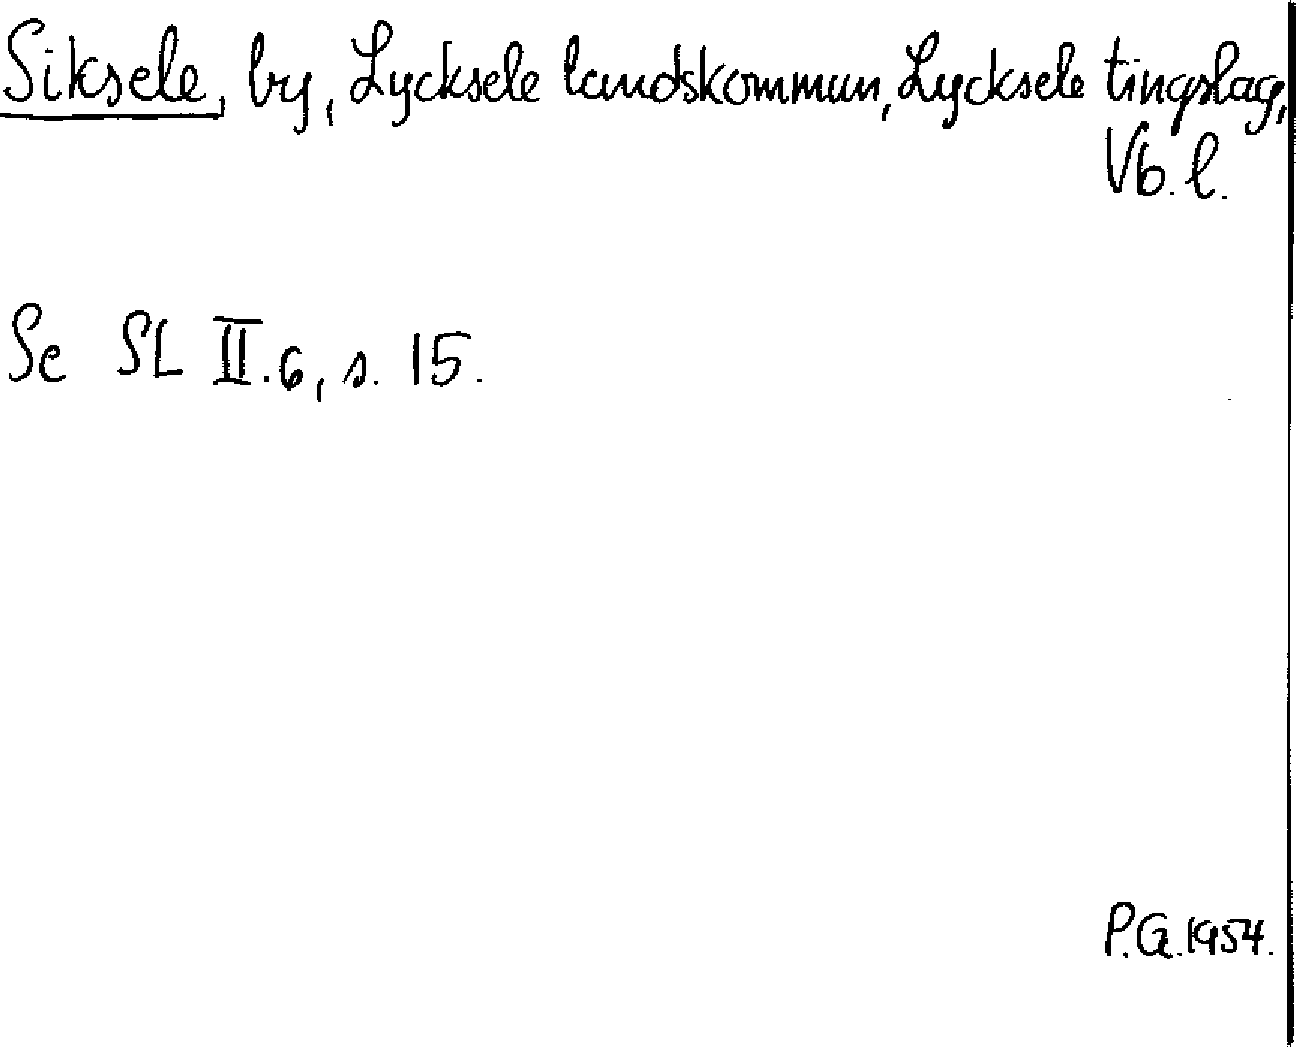 Siksele, by, Lycksele landskommun, Lycksele tingslag,
Vb. l.
Se SL II.6, s. 15.
P.G. 1954.